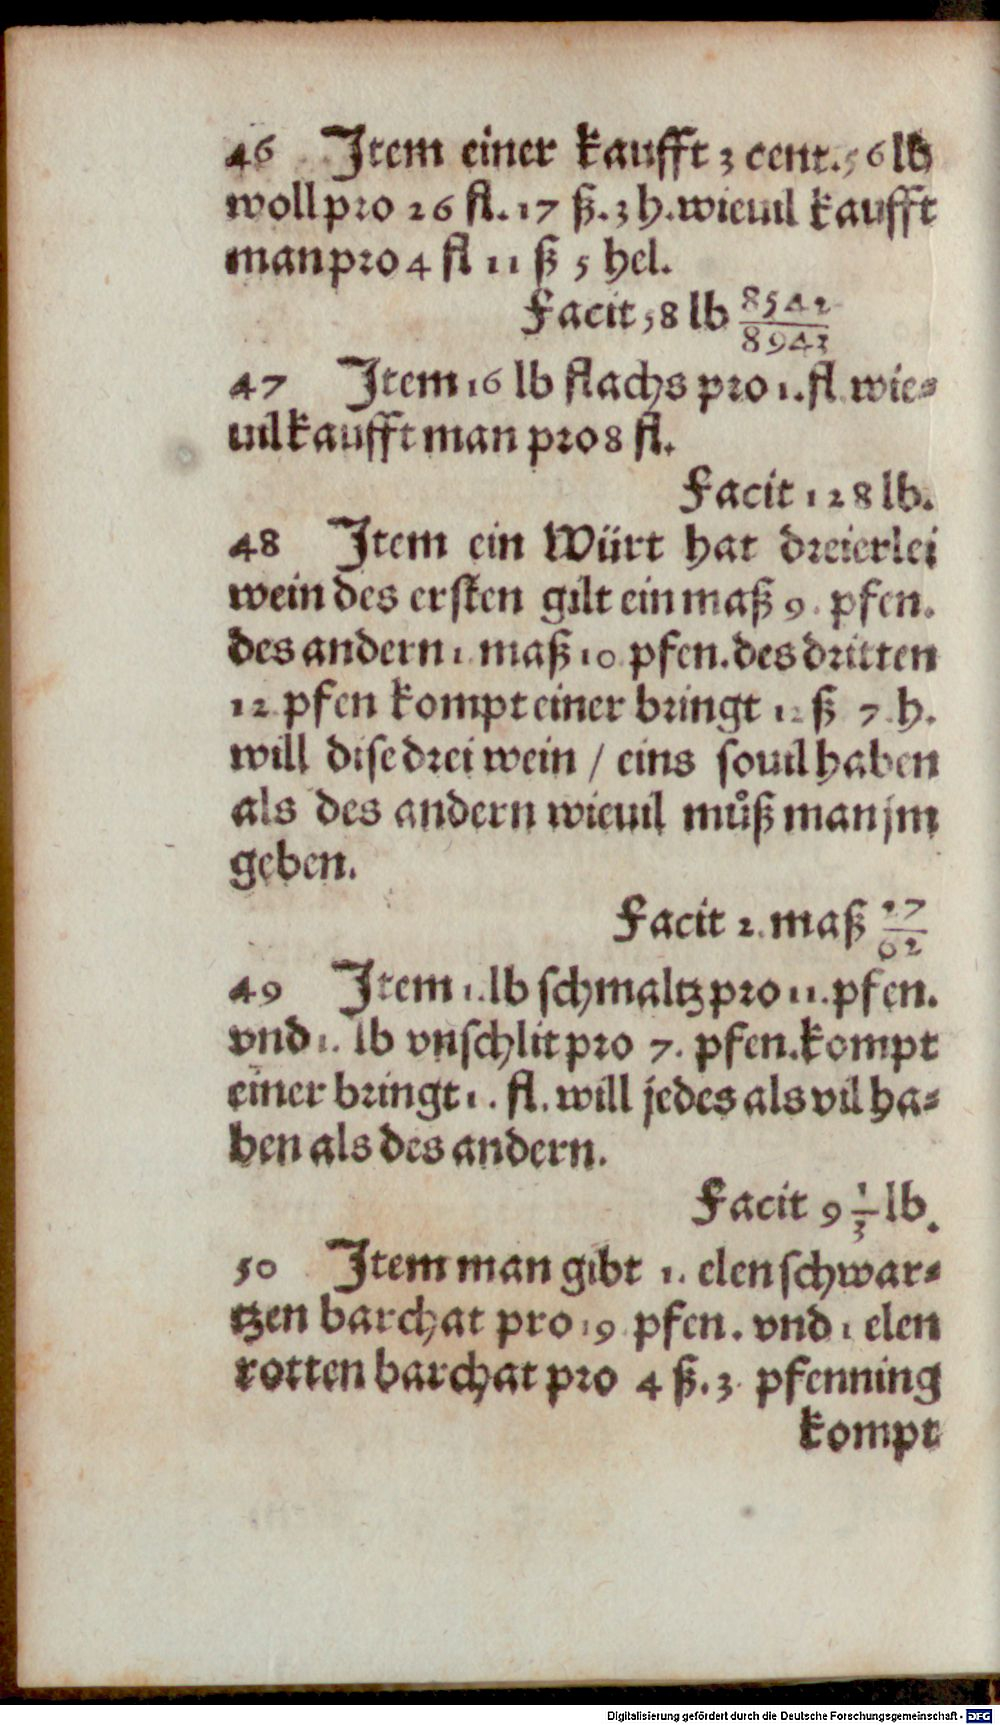 46 Item einer kaufft 3 cent. 56 lb
woll pro 26 fl. 17 ß. 3 h. wieuil kaufft
man pro 4 fl 11 ß 5 hel.
Facit 58 lb 8542/8943
47 Item 16 lb flachs pro 1. fl. wie=
uil kaufft man pro 8 fl.
Facit 128 lb.
48 Item ein Würt hat dreierlei
wein des ersten gilt ein maß 9. pfen.
des andern 1. maß 10 pfen. des dritten
12 pfen kompt einer bringt 12 ß 7. h.
will dise drei wein / eins souil haben
als des andern wieuil můß man jm
geben.
Facit 2. maß 27/62
49 Item 1. lb schmaltz pro 11. pfen.
vnd 1. lb vnschlit pro 7. pfen. kompt
einer bringt 1. fl. will jedes als vil ha=
ben als des andern.
Facit 9 1/3 lb.
50 Item man gibt 1. elen schwar=
tzen barchat pro 19 pfen. vnd 1 elen
rotten barchat pro 4 ß. 3 pfenning
kompt
Digitalisierung gefördert durch die Deutsche Forschungsgemeinschaft - DFG